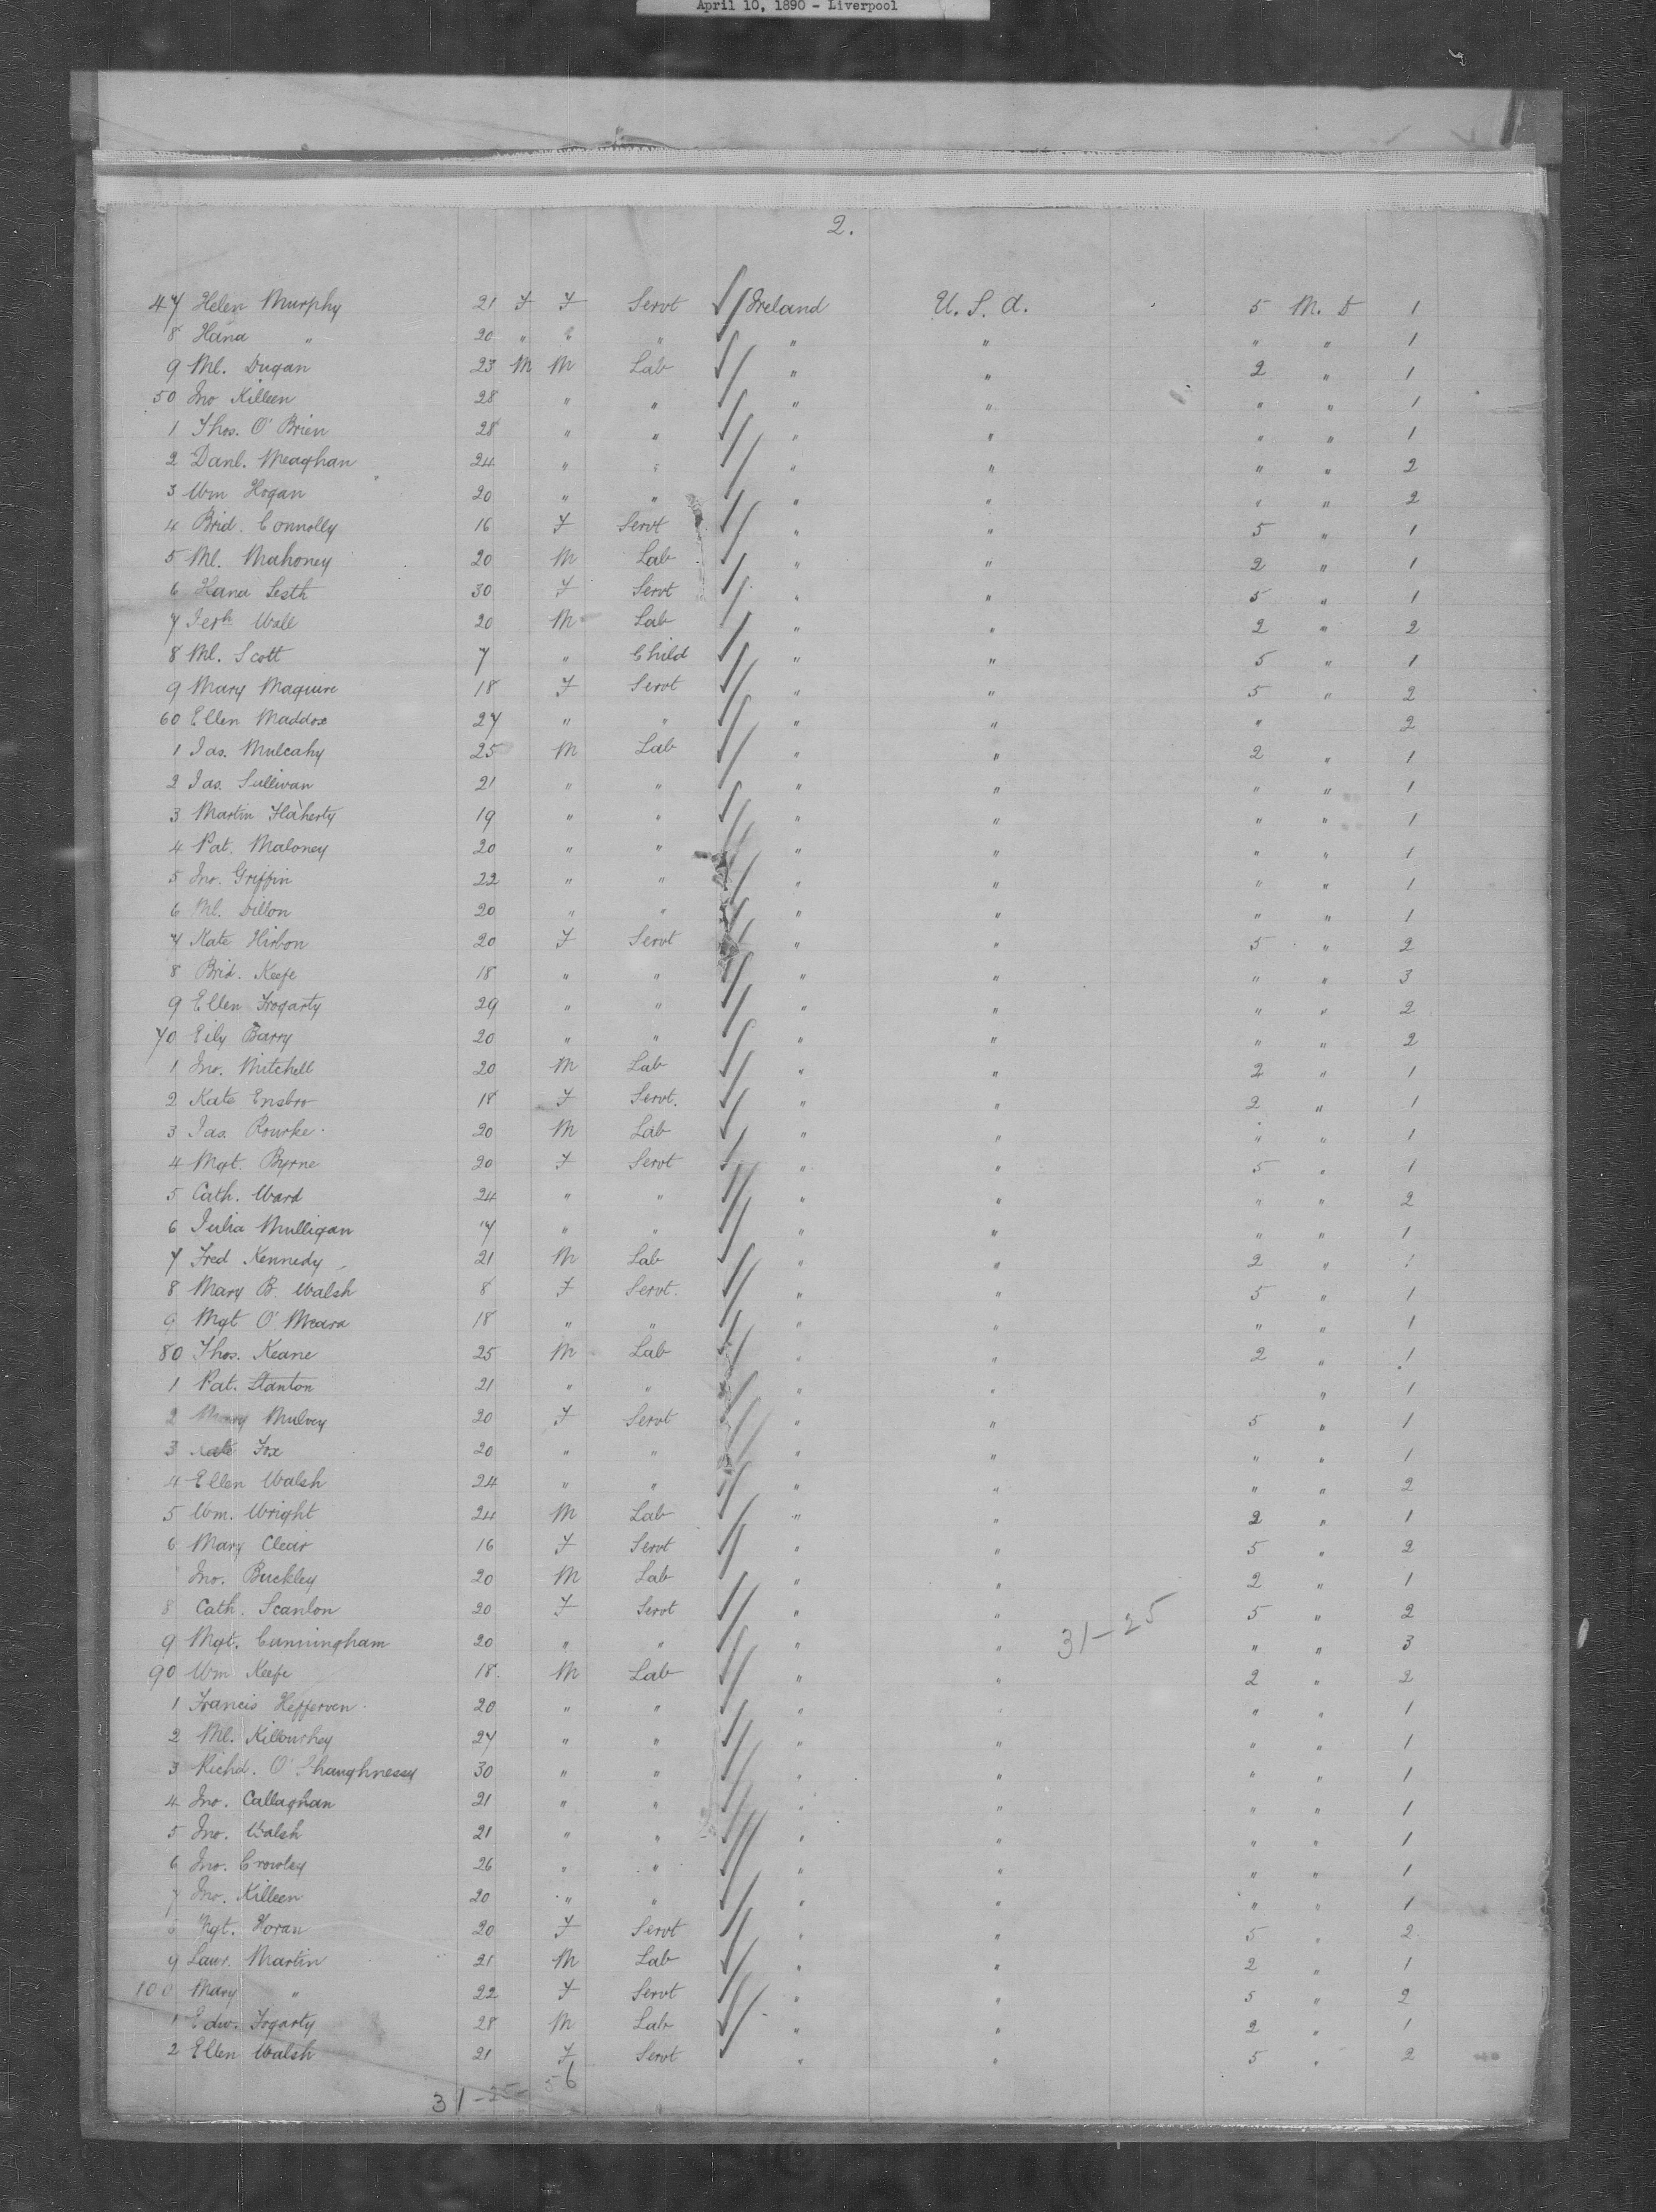 April 10, 1890 - Liverpool
2.
47 Helen Murphy 21 F F Servt Ireland U. S. A. 5 M. D 1
8 Hana " 20 " " " " " " 1
9 Ml. Dugan 23 M M Lab " " 2 " 1
50 Jno Killeen 28 " " " " " " 1
1 Thos. O' Brien 28 " " " " " " 1
2 Danl. Meaghan 24 " " " " " " 2
3 Wm Hogan 20 " " " " " " 2
4 Brid. Connolly 16 F Servt " " 5 " 1
5 Ml. Mahoney 20 M Lab " " 2 " 1
6 Hana 30 F Servt " " 5 " 1
7 Jerh Wall 20 M Lab " " 2 " 2
8 Ml. Scott 7 " Child " " 5 " 1
9 Mary Maguire 18 F Servt " " 5 " 2
60 Ellen Maddox 27 " " " " " 2
1 Jas. Mulcahy 25 M Lab " " 2 " 1
2 Jas. Sullivan 21 " " " " " " 1
3 Martin Flaherty 19 " " " " " " 1
4 Pat. Maloney 20 " " " " " " 1
5 Jno. Griffin 22 " " " " " " 1
6 Ml. Dillon 20 " " " " " " 1
7 Kate 20 F Servt " " 5 " 2
8 Brid. Keefe 18 " " " " " " 3
9 Ellen Frogarty 29 " " " " " " 2
70 Eily Barry 20 " " " " " " 2
1 Jno. Mitchell 20 M Lab " " 2 " 1
2 Kate Ensbro 18 F Servt. " " 2 " 1
3 Jas. Rourke 20 M Lab " " " " 1
4 Mgt. Byrne 20 F Servt " " 5 " 1
5 Cath. Ward 24 " " " " " " 2
6 Julia Mulligan 17 " " " " " " 1
7 Fred Kennedy 21 M Lab " " 2 " 1
8 Mary B. Walsh 8 F Servt. " " 5 " 1
9 Mgt O' Meara 18 " " " " " " 1
80 Thos. Keane 25 M Lab " " 2 " 1
1 Pat. Stanton 21 " " " " " 1
2 Mary Mulvey 20 F Servt " " 5 " 1
3 Kate Fox 20 " " " " " " 1
4 Ellen Walsh 24 " " " " " " 2
5 Wm. Wright 24 M Lab " " 2 " 1
6 Mary Clear 16 F Servt " " 5 " 2
Jno. Buckley 20 M Lab " " 2 " 1
8 Cath. Scanlon 20 F Servt " " 31-25 5 " 2
9 Mgt. Cunningham 20 " " " " " " 3
90 Wm Keefe 18. M Lab " " 2 " 2
1 Francis Hefferven 20 " " " " " " 1
2 Ml. Killourhey 27 " " " " " " 1
3 Richd. O' Shaughnessy 30 " " " " " " 1
4 Jno. Callaghan 21 " " " " " " 1
5 Jno. Walsh 21 " " " " " " 1
6 Jno. Crowley 26 " " " " " " 1
7 Jno. Killeen 20 " " " " " " 1
8 Mgt. Horan 20 F Servt " " 5 " 2
9 Lawr. Martin 21 M Lab " " 2 " 1
100 Mary " 22 F Servt " " 5 " 2
1 Edw. Fogarty 28 M Lab " " 2 " 1
2 Ellen Walsh 21 F Servt " " 5 " 2
31-25- 56